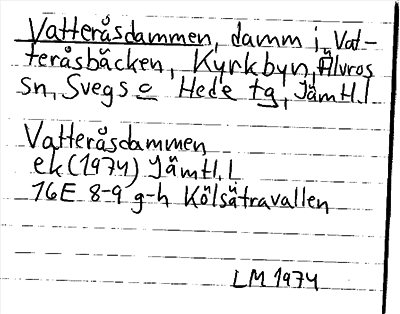 Vatteråsdammen, damm i Vat-
teråsbäcken, Kyrkbyn, Älvros
sn, Svegs o Hede tg, Jämtl. l
Vatteråsdammen
ek (1974) Jämtl. l
16E 8-9 g-h Kölsätravallen
LM 1974